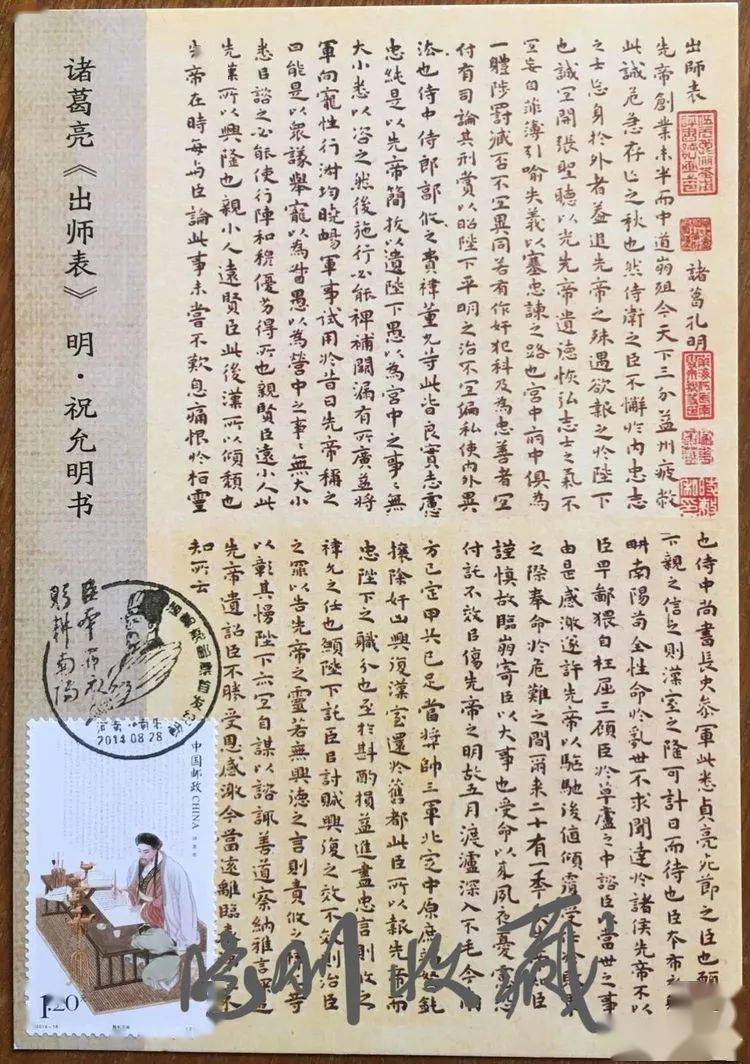 诸葛亮《出师表》 明·祝允明书
出師表 諸葛孔明
先帝創業未半而中道崩殂今天下三分益州疲敝
此誠危急存亡之秋也然侍衛之臣不懈於内忠志
之士忘身於外者葢追先帝之殊遇欲報之於陛下
也誠宜開張聖聽以光先帝遺德恢弘志士之氣不
宜妄自菲薄引喻失義以塞忠諫之路也宮中府中俱為
一體陟罰臧否不宜異同若有作奸犯科及為忠善者宜
付有司論其刑賞以昭陛下平明之治不宜偏私使内外異
法也侍中侍郎郭攸之費禕董允等此皆良實志慮
忠純是以先帝簡拔以遺陛下愚以為宮中之事事無
大小悉以咨之然後施行必能裨補闕漏有所廣益將
軍向寵性行淑均曉暢軍事試用於昔日先帝稱之
曰能是以衆議舉寵以為督愚以為營中之事事無大小
悉臣諮之必能使行陣和穆優劣得所也親賢臣遠小人此
先漢所以興隆也親小人遠賢臣此後漢所以傾頹也
先帝在時每與臣論此事未嘗不歎息痛恨於桓靈
也侍中尚書長史參軍此悉貞亮死節之臣也願
下親之信之則漢室之隆可計日而待也臣本布衣
耕南陽苟全性命於亂世不求聞達於諸侯先帝不以
臣卑鄙猥自枉屈三顧臣於草廬之中諮臣以當世之事
由是感激遂許先帝以驅馳後值傾覆受
之際奉命於危難之間爾来二十有一年 知臣
謹慎故臨崩寄臣以大事也受命以来夙夜憂
付託不效臣傷先帝之明故五月渡瀘深入不毛今
方已定甲兵已足當獎帥三軍北定中原庶 鈍
攘除奸凶興復漢室還於舊都此臣所以報先帝而
忠陛下之職分也至於斟酌損益進盡忠言則攸之
禕允之任也願陛下託臣以討賊興復之效不效則治臣
之罪以告先帝之靈若無興德之言則責攸之禕允等
以彰其慢陛下亦宜自謀以諮諏善道察納雅言深追
先帝遺詔臣不勝受恩感激今當遠離臨表 不
知所云
臣本布衣
躬耕南陽
2014.08.28
中国邮政 CHINA
1.20元
收藏